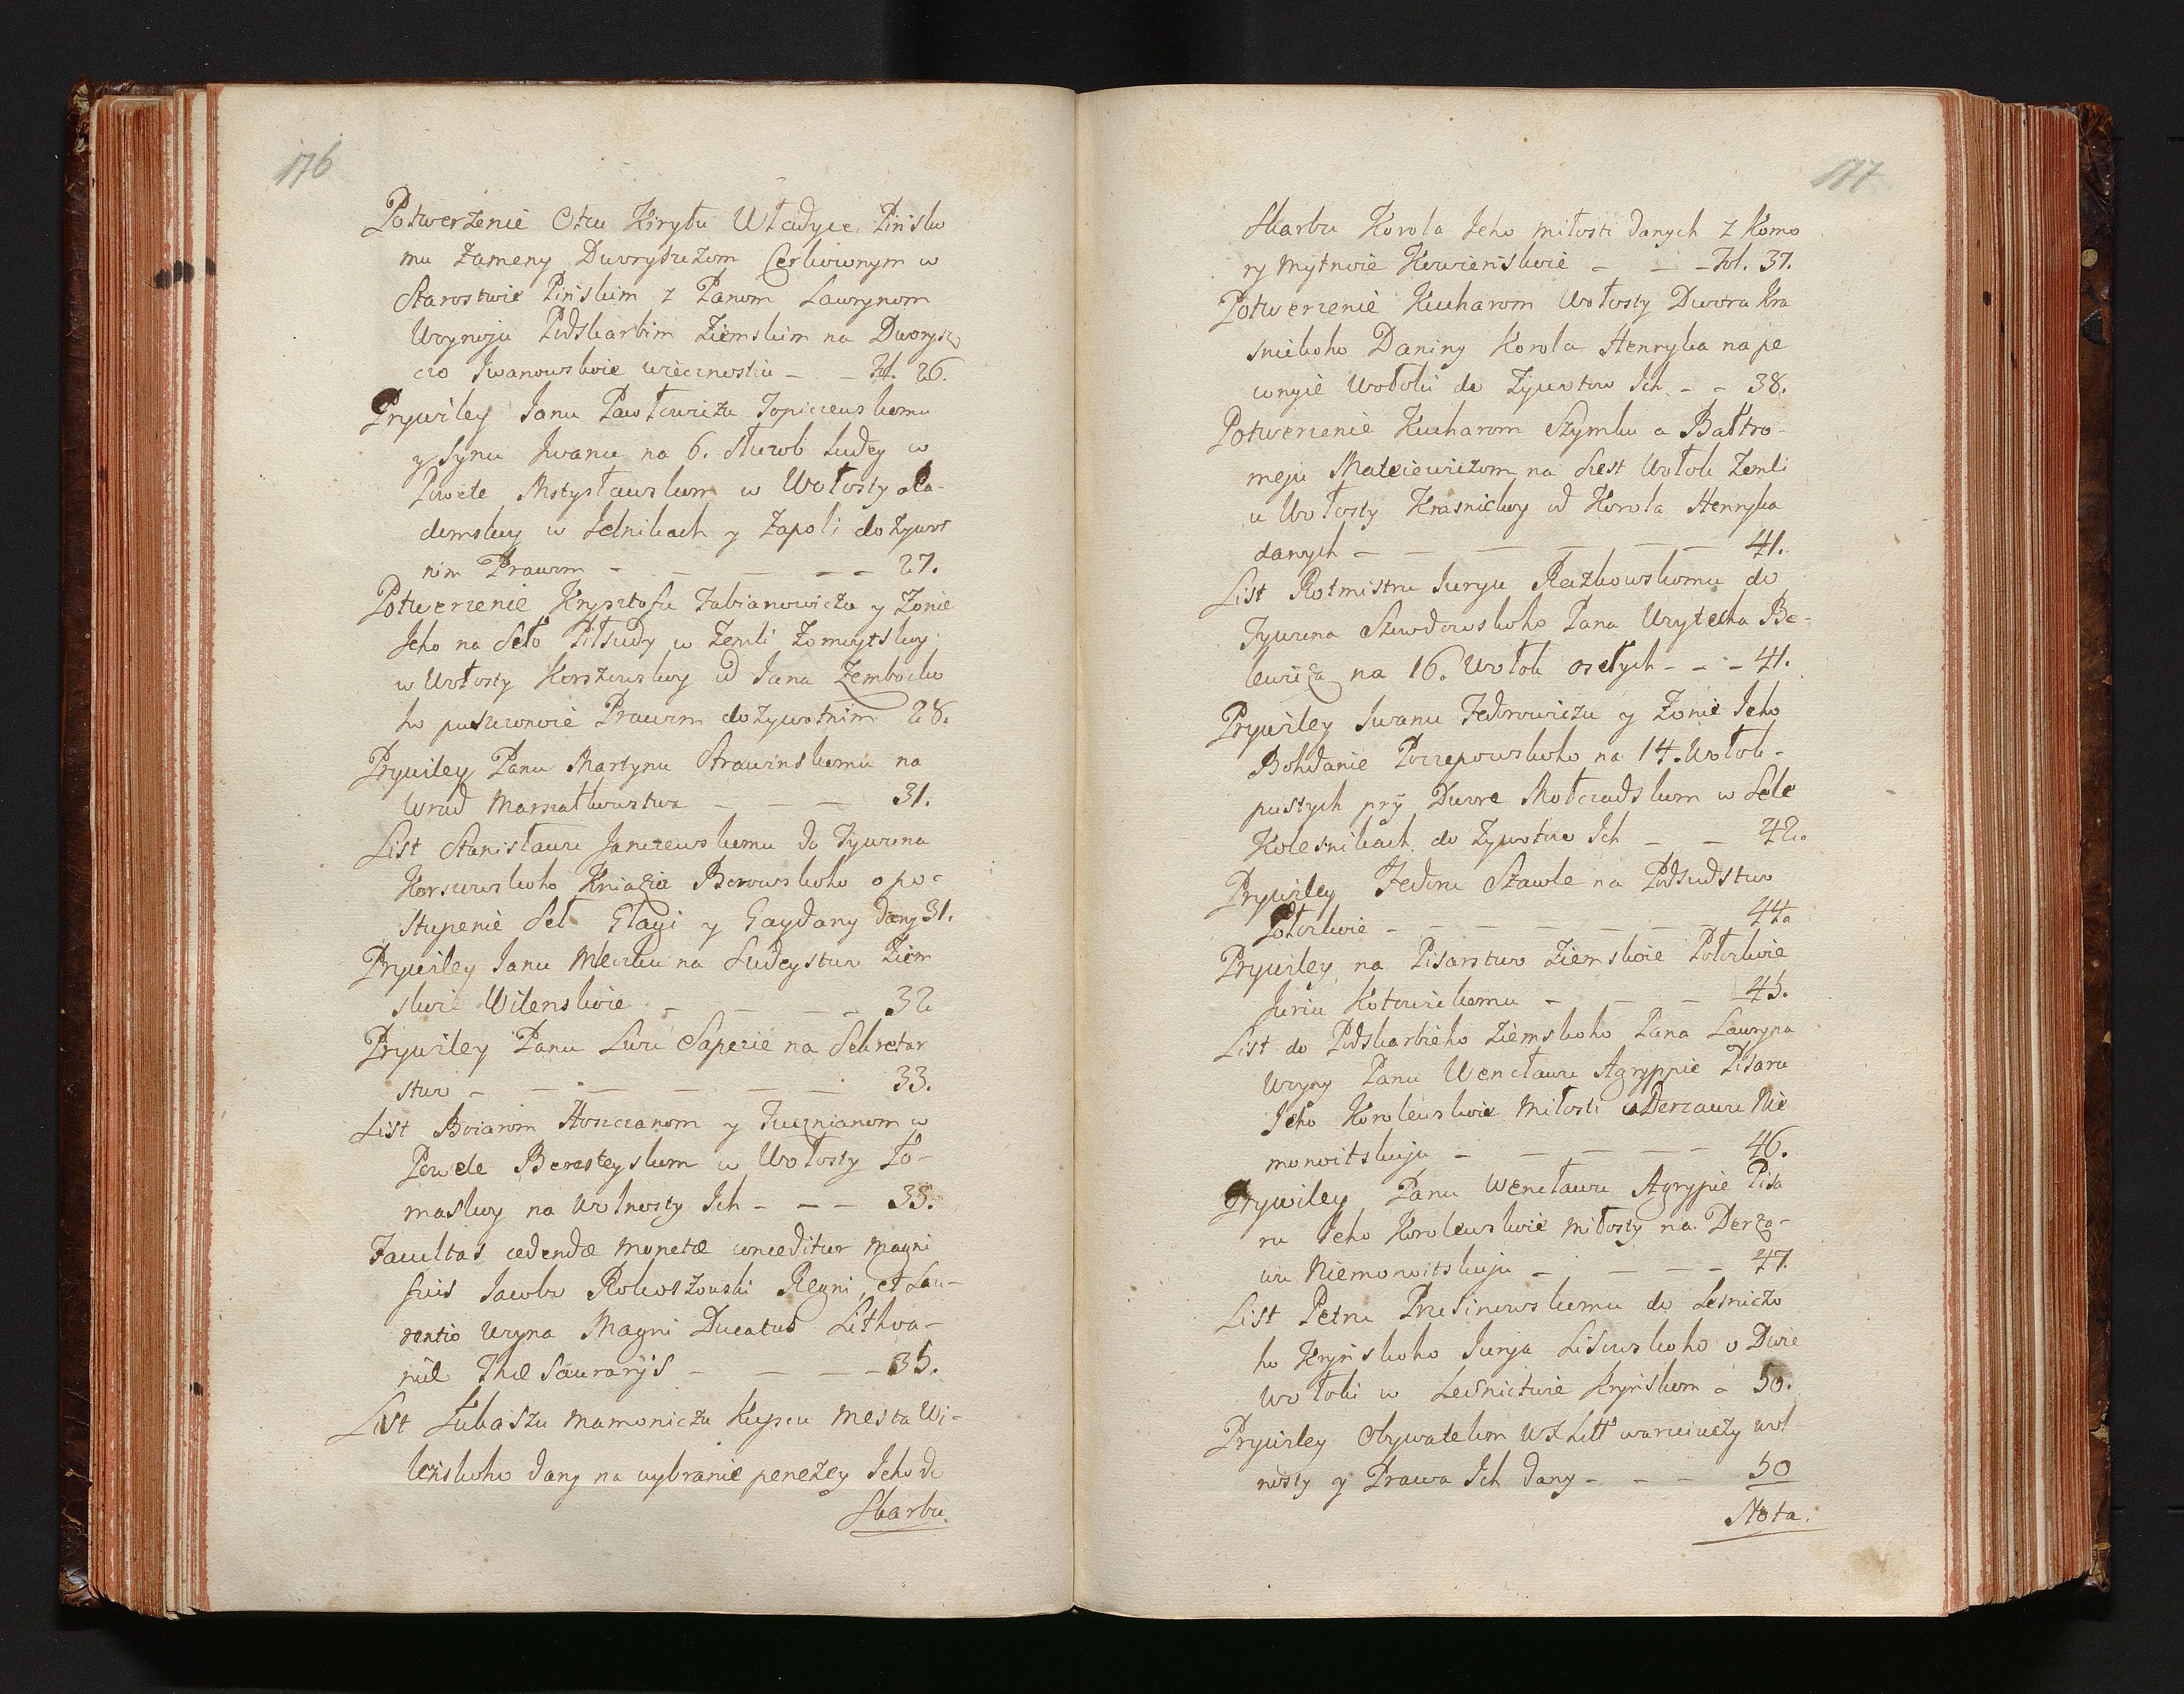 176
Potwerżenie Otcu Kiryłu Władyce Pińsko
mu Zameny Dworyszczom Cerkownym w
Starostwie Pińskim z Panom Lawrynom
Woynoju Podskarbim Ziemskim na Dworysz
czo Iwanowskoie wiecznostiu - - fol. 26.
Prywiley Janu Pawłowiczu Topiczewskomu
y Synu Iwanu na 6. służob ludey w
Powete Mstysławskom w Wołosty Ra-
domskoy w Jelnikach y Zapoli dożywot
nim Prawom - - - - - 27.
Potwerzenie Krysztofu Fabianowiczu y Żonie
Jeho na Seło Piłsudy w Zemli Żomoytskoy
w Wołosty Korszowskoy od Jana Zembocko
ho puszczonoie Prawom dożywotnim 28.
Prywiley Panu Martynu Strawinskomu na
Wrad Marszałkowstwa - - - 31.
List Stanisławu Janczewskomu do Tywona
Korsowskoho Kniazia Borowskoho o po-
stupenie Seł Głagi y Gaydany dany 31.
Prywiley Janu Meczku na Sudeystwo Ziem
skoie Wilenskoie - - - - 32
Prywiley Panu Lwu Sapezie na Sekretar
stwo - - - - - - 33.
List Boiarom Hoszczanom y Tucznianom w
Powete Beresteyskom w Wołosty Ło-
maskoy na Wolnosty Ich - - - 35.
Facultas cedendæ monetæ conceditur Magni
ficis Jacobo Rokoszowski Regni, et Lau-
rentio Woyna Magni Ducatus Lithva-
niæ Thæsaurarijs - - - - 35.
List Łukaszu Mamoniczu Kupcu Mesta Wi-
lenskoho dany na wybranie penezey Jeho do
Skarbu.
177
Skarbu Korola Jeho miłosti danych z Komo
ry Mytnoie Kowienskoie - - - Fol. 37.
Potwerzenie Kucharom Wołosty Dwora Kra
snickoho Daniny Korola Henryka na pe
wnyie Wołoki do Żywotow Ich - - 38.
Potwerzenie Kucharom Szymku a Bałtro-
meju Mateiewiczom na Szest Wołok Zemli
u Wołosty Krasnickoy od Korola Henryka
danych - - - - - - 41.
List Rotmistru Juryu Rażkowskomu do
Tywuna Szawdowskoho Pana Woytecha Be-
lewicza na 16. Wołok osełych - - - 41.
Prywiley Iwanu Fedorowiczu y Żonie Jeho
Bohdanie Poczepowskoho na 14. Wołok
pustych pry Dwore Mołczadskom w Sele
Kolesnikach do Żywotow Ich - - 42.
Prywiley Fedoru Szawle na Podsudstwo
Połockoie - - - - - - 44.
Prywiley na Pisarstwo Ziemskoie Połockoie
Juriu Kotowickomu - - - 45.
List do Podskarbieho Ziemskoho Pana Lawryna
Woyny Panu Wencławu Agryppie Pisaru
Jeho Korolewskoie Miłosti o Derzawu Nie
monoitskuju - - - - - 46.
Prywiley Panu Wencławu Agrypie Pisa
ru Jeho Korolewskoie miłosty na Derża-
wu Niemonoitskuju - - - - 47.
List Petru Prusinowskomu do Lesniczo
ho Kryńskoho Jurja Lisowskoho o Dwie
Wołoki w Leśnictwie Kryńskom - 50.
Prywiley Obywatelem WXLitt waruiuczy wol
nosty y Prawa Ich dany - - - 50
Nota.